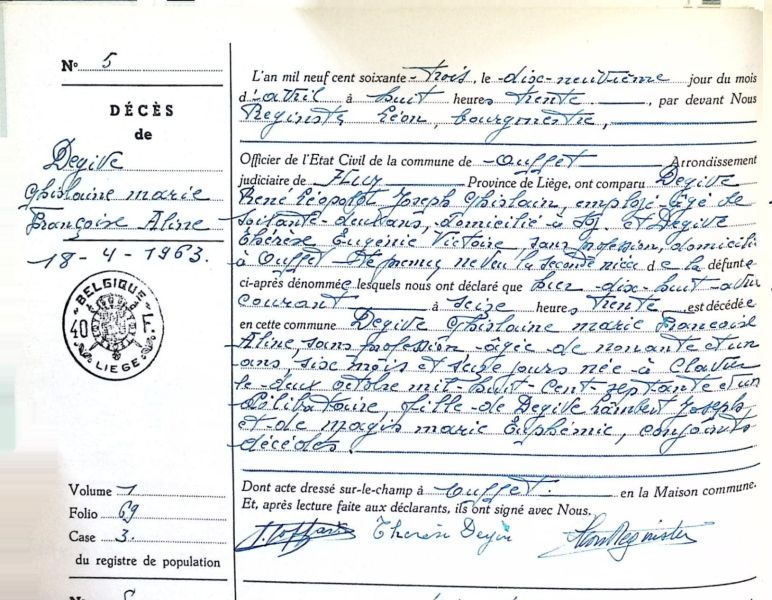 N° 5
DÉCÈS
de
Degive
Ghislaine marie
Françoise Aline
18-4-1963.
BELGIQUE
40
LIEGE
Volume 1
Folio 69
Case 3.
du registre de population
L'an mil neuf cent soixante-trois, le dix-neuvième jour du mois
d'avril à huit heures trente, par devant Nous
Reginster Léon, bourgmestre,
Officier de l'Etat Civil de la commune de Ouffet Arrondissement
judiciaire de Huy Province de Liège, ont comparu Degive
René Léopold Joseph Ghislain, employé âgé de
soixante-deux ans, domicilié à et Degive
Thérèse Eugénie Victoire, sans profession, domicili
à Ouffet le premier neveu la seconde nièce de la défunte
ci-après dénommée lesquels nous ont déclaré que hier dix-huit avril
courant à seize heures trente est décédée
en cette commune Degive Ghislaine marie Françoise
Aline, sans profession âgée de nonante et un
ans six mois et seize jours née à Clavier
le deux octobre mil huit cent septante et un
célibataire, fille de Degive Lambert Joseph,
et de magis marie Euphémie, conjoints
décédés.
Dont acte dressé sur-le-champ à Ouffet. en la Maison commune.
Et, après lecture faite aux déclarants, ils ont signé avec Nous.
Therèse Degive Léon Reginster